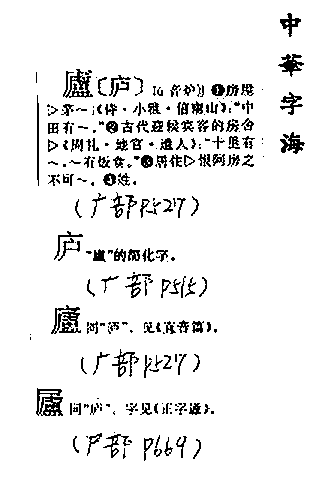 中華字海
廬〔庐〕lú 音炉 ❶房屋
▷茅～|《诗·小雅·信南山》：“中
田有～。”❷古代迎候宾客的房舍
▷《周礼·地官·遗人》：“十里有
～，～有饮食。”❸居住▷恨阿房之
不可～。❹姓。
(广部 P.527)
庐 “廬”的简化字。
(广部 P515)
同“庐”。见《直音篇》。
(广部 P.527)
同“庐”。字见《正字通》。
(尸部 P664)